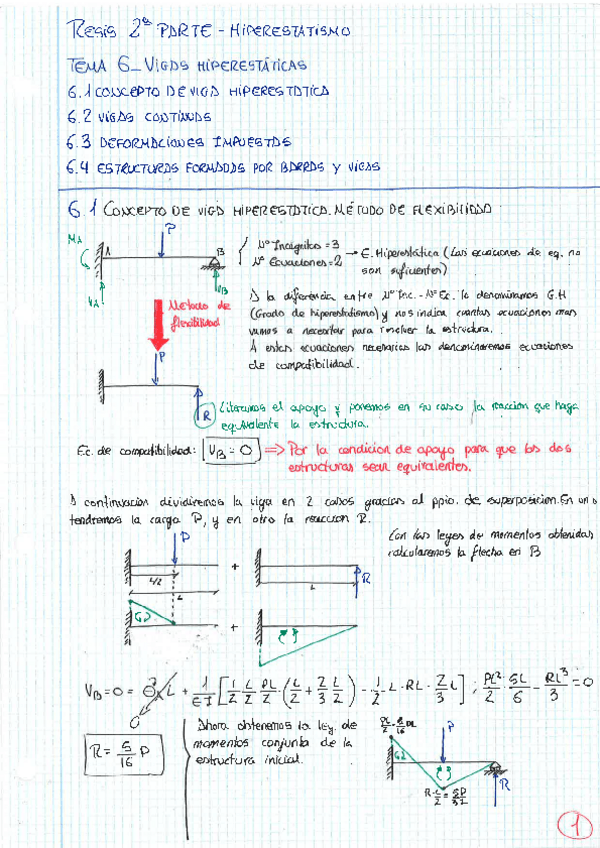 RESIS 2ª PARTE - HIPERESTATISMO
TEMA 6_ VIGAS HIPERESTÁTICAS
6.1 CONCEPTO DE VIGA HIPERESTÁTICA
6.2 VIGAS CONTINUAS
6.3 DEFORMACIONES IMPUESTAS
6.4 ESTRUCTURAS FORMADAS POR BARRAS Y VIGAS
6.1 CONCEPTO DE VIGA HIPERESTÁTICA. MÉTODO DE FLEXIBILIDAD
P
MA
A
B
VA
VB
Nº Incógnitas = 3
Nº Ecuaciones = 2 → E. Hiperestática (Las ecuaciones de eq. no
son suficientes)
Método de
flexibilidad
A la diferencia entre Nº Inc. - Nº Ec. le denominamos G.H
(Grado de hiperestatismo) y nos indica cuantas ecuaciones mas
vamos a necesitar para resolver la estructura.
A estas ecuaciones necesarias las denominaremos ecuaciones
de compatibilidad.
P
R
Liberamos el apoyo y ponemos en su caso la reaccion que haga
equivalente la estructura.
Ec. de compatibilidad: VB = 0 => Por la condicion de apoyo para que las dos
estructuras sean equivalentes.
A continuación dividiremos la viga en 2 casos gracias al ppio. de superposicion. En un
tendremos la carga P, y en otro la reaccion R.
P
Con las leyes de momentos obtenidas
calcularemos la flecha en B
+
R
L/2
L
L
+
VB = 0 = θ L + 1/EI [1/2 L/2 PL/2 · (L/2 + 2/3 L/2) - 1/2 L · RL · 2/3 L] ; PL²/8 · 5L/6 - RL³/3 = 0
0
R = 5/16 P
Ahora obtenemos la ley de
momentos conjunta de la
estructura inicial.
P
R
1